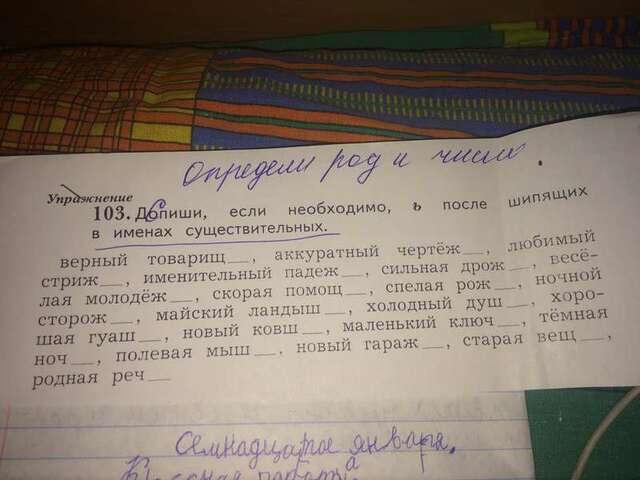 Определи род и число.
Упражнение
103. Допиши, если необходимо, ь после шипящих
в именах существительных.
верный товарищ__, аккуратный чертёж__, любимый
стриж__, именительный падеж__, сильная дрож__, весё-
лая молодёж__, скорая помощ__, спелая рож__, ночной
сторож__, майский ландыш__, холодный душ__, хоро-
шая гуаш__, новый ковш__, маленький ключ__, тёмная
ноч__, полевая мыш__, новый гараж__, старая вещ__,
родная реч__
Семнадцатое января.
Классная работа